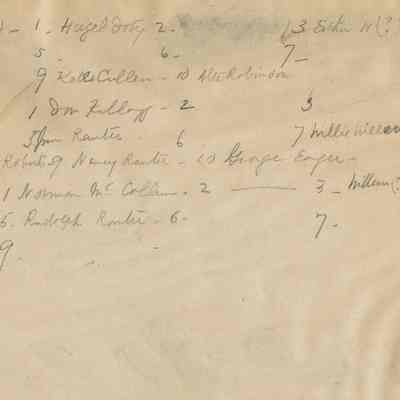 1 - Hazel Doty 2 - 3 Esther W(?)
5 - 6 - 7 -
9 Kate Cullen - 10 Alec Robinson
1 Don Kellogg - 2 3
5 Jim Rantes - 6 7 Willie Willers
9 Nancy Rantes - 10 George Eager -
1 Norman Mc Collum - 2 — 3 - William (?
5 - Rudolph Rantes - 6 - 7 -
9 -